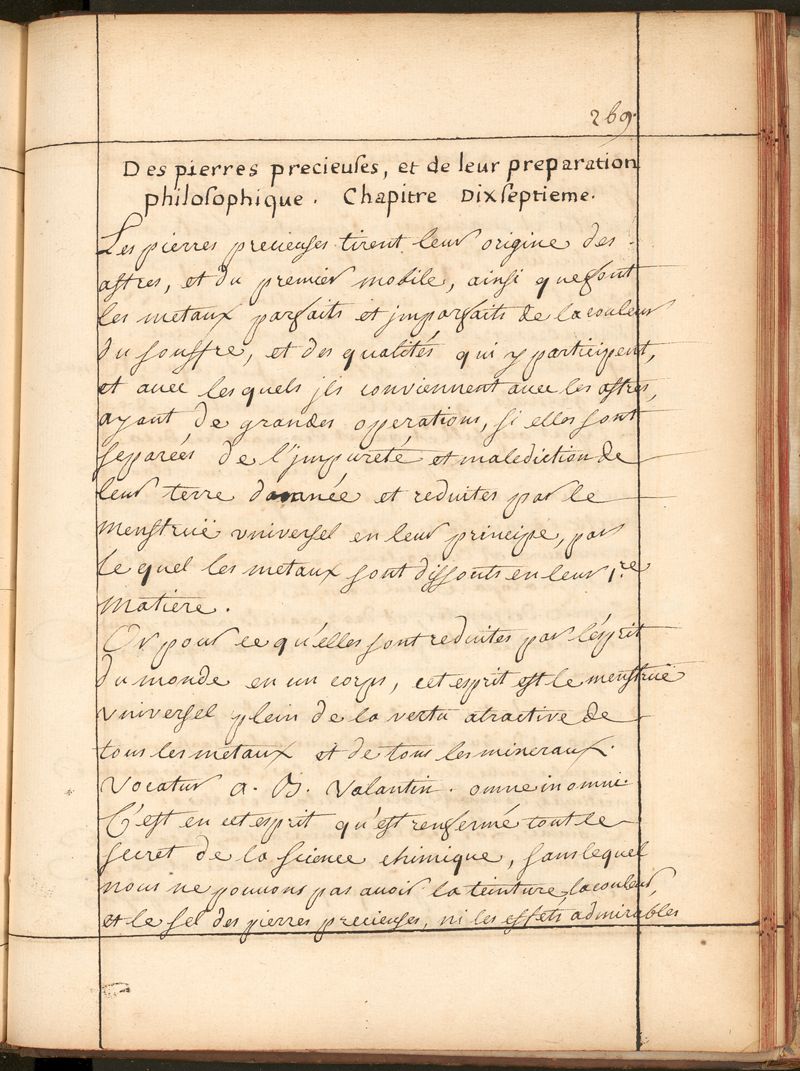 269.
Des pierres precieuses, et de leur preparation
philosophique. Chapitre Dixseptieme.
Les pierres precieuses tirent leur origine des
astres, et du premier mobile, ainsi que font
les metaux parfaits et jmparfaits de la couleur
du souffre, et des qualités qui y participent,
et avec les quels jls conviennent avec les astres,
ayant de grandes operations, si elles sont
separées de l'jmpureté et malediction de
leur terre damnée et reduites par le
menstruë vniversel en leur principe, par
le quel les metaux sont dissouts en leur 1.re
matiere.
Or pour ce qu'elles sont reduites par l'esprit
du monde en un corps, cet esprit est le menstruë
vniversel plein de la vertu atractive de
tous les metaux et de tous les mineraux.
vocatur a. B. Valantin. omne in omni.
C'est en cet esprit qu'est renfermé tout le
secret de la science chimique, sans lequel
nous ne pouvons pas avoir la teinture, la couleur,
et le sel des pierres precieuses, ni les effets admirables